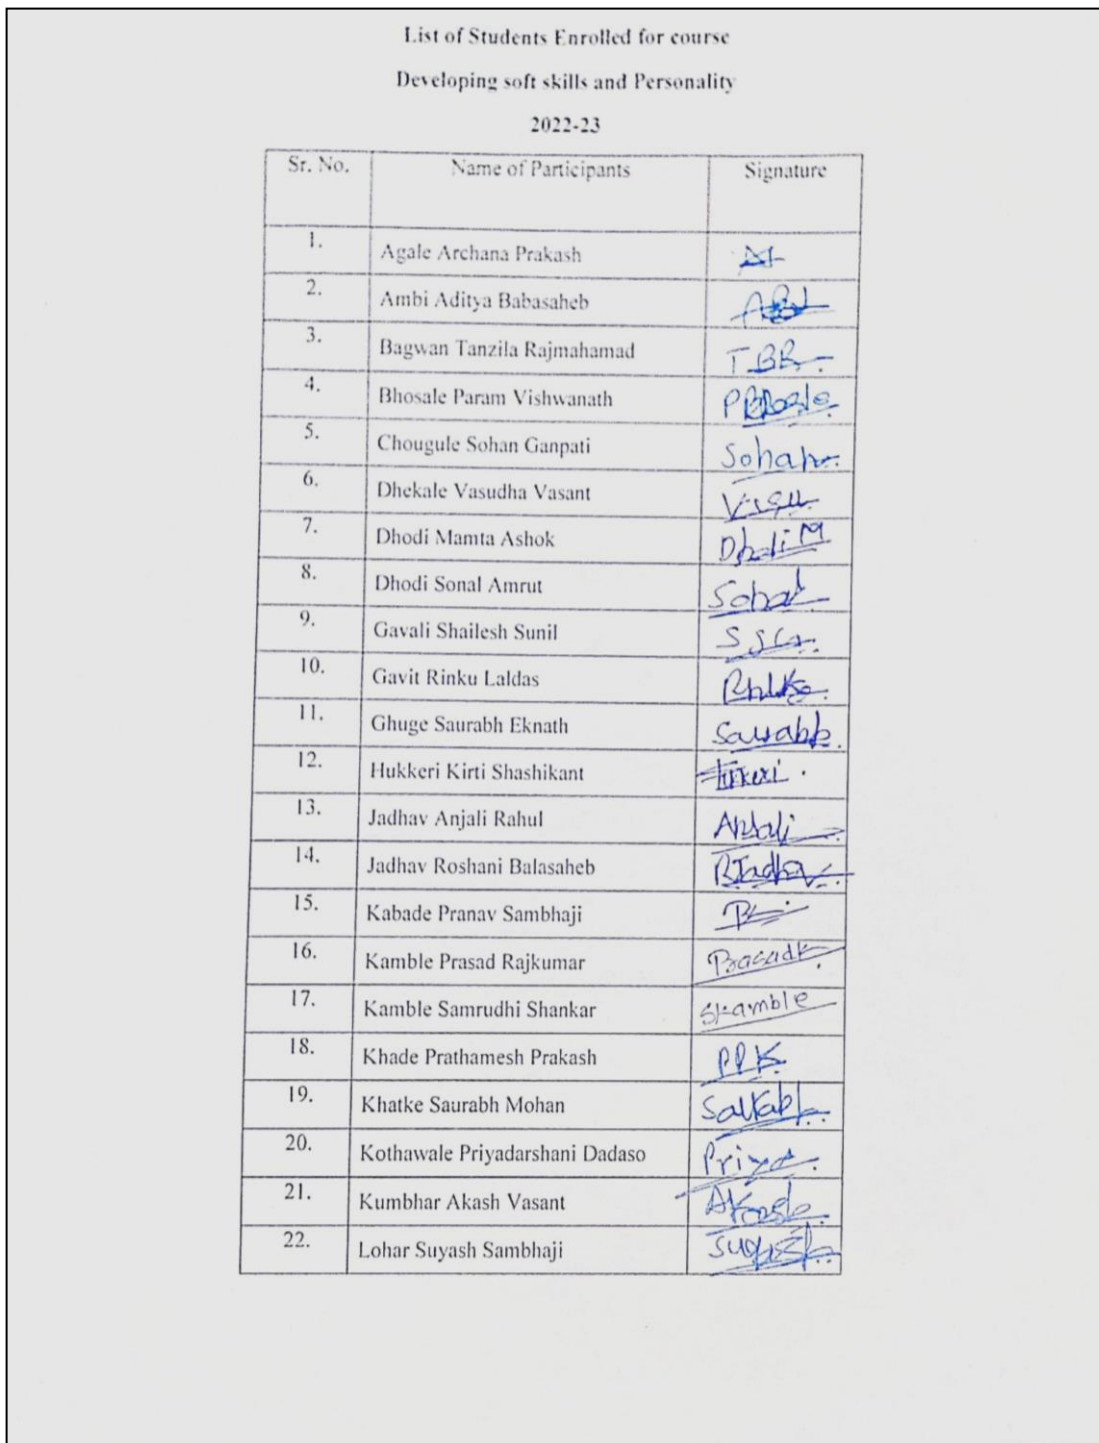 List of Students Enrolled for course
Developing soft skills and Personality
2022-23
Sr. No. Name of Participants Signature
1. Agale Archana Prakash
2. Ambi Aditya Babasaheb
3. Bagwan Tanzila Rajmahamad TBR
4. Bhosale Param Vishwanath
5. Chougule Sohan Ganpati Sohan
6. Dhekale Vasudha Vasant
7. Dhodi Mamta Ashok Dhodi M
8. Dhodi Sonal Amrut Sonal
9. Gavali Shailesh Sunil SSG
10. Gavit Rinku Laldas
11. Ghuge Saurabh Eknath Saurabh
12. Hukkeri Kirti Shashikant
13. Jadhav Anjali Rahul Anjali
14. Jadhav Roshani Balasaheb RJadhav
15. Kabade Pranav Sambhaji
16. Kamble Prasad Rajkumar PrasadK
17. Kamble Samrudhi Shankar Skamble
18. Khade Prathamesh Prakash PPK
19. Khatke Saurabh Mohan
20. Kothawale Priyadarshani Dadaso Priya
21. Kumbhar Akash Vasant Akash
22. Lohar Suyash Sambhaji Suyash